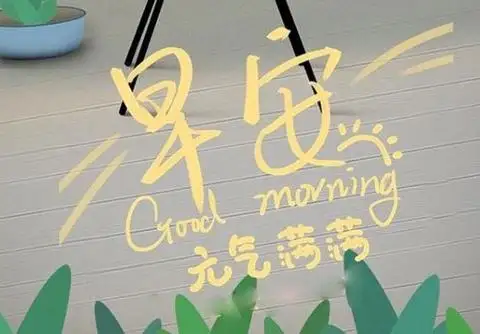 早安
Good morning
元气满满